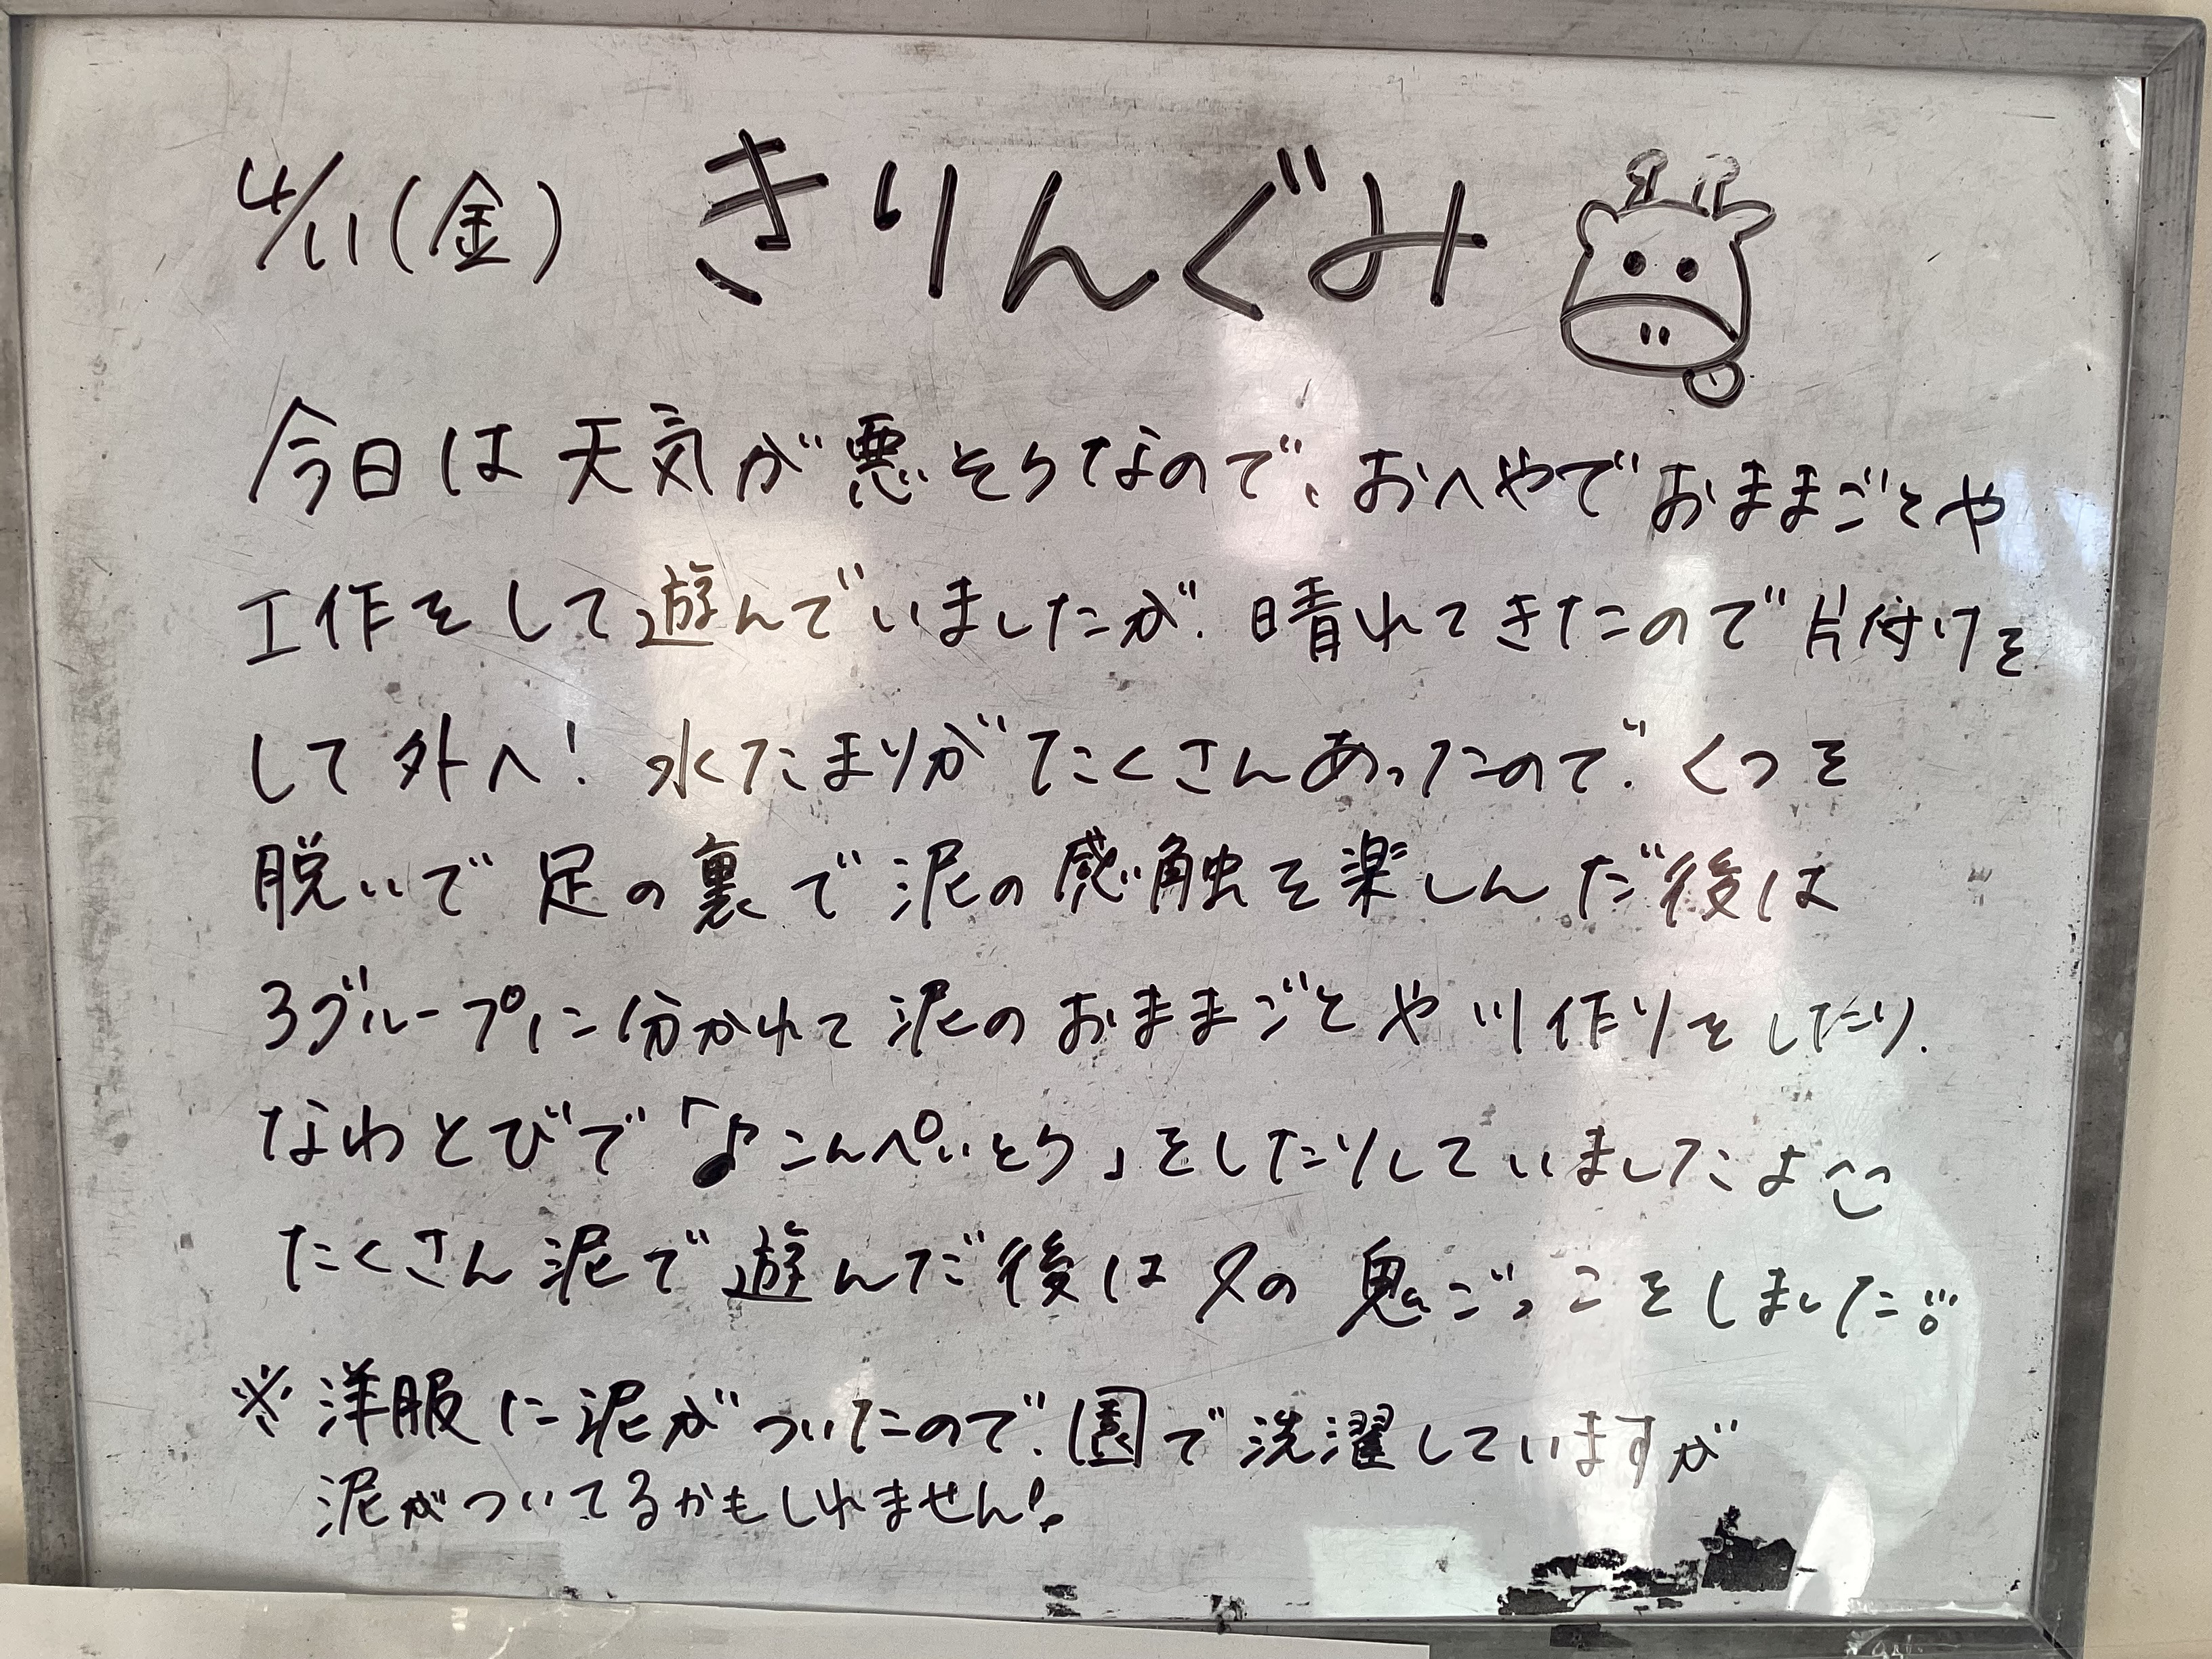 4/11(金) きりんぐみ
今日は天気が悪そうなので、おへやでおままごとや
工作をして遊んでいましたが、晴れてきたので片付けを
して外へ! 水たまりがたくさんあったので、くつを
脱いで足の裏で泥の感触を楽しんだ後は
3グループに分かれて泥のおままごとや川作りをしたり、
なわとびで「♪こんぺいとう」をしたりしていましたよ
たくさん泥で遊んだ後は〆の鬼ごっこをしました!!
※洋服に泥がついたので、園で洗濯していますが
泥がついてるかもしれません!